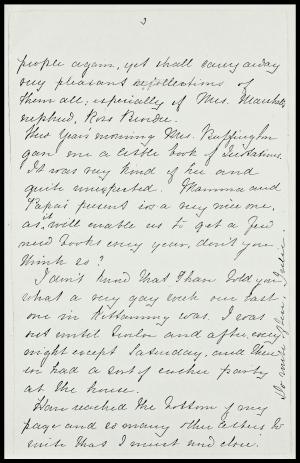 3
people again, yet shall carry away
very pleasant recollections of
them all; especially of Mrs. Marshall's
nephew, Ross
New Year's morning Mrs. Buffington
gave me a little book of
It was very kind of her and
quite unexpected. Mamma and
Papa's present is a very nice one,
as it will enable us to get a few
new books every year, don't you
think so?
I don't think that I have told you
what a very gay week our last
one in Kittanning was. I was
out until twelve and after, every
night except Saturday, and then
we had a sort of euchre party
at the house.
Have reached the bottom of my
page and so many other letters to
write that I must end close.
Do write